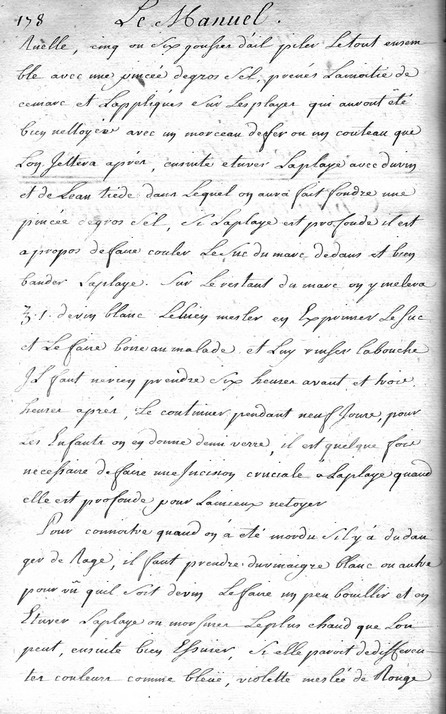 178 Le Manuel.
Ruelle, cinq ou Six gousses d'ail piler Le tout ensem-
ble avec une pincée de gros Sel, prenés La moitié de
ce marc et L'appliqués Sur Les playes qui auront été
bien nettoyées avec un morceau de fer ou un couteau que
L'on Jettera aprés, ensuite etuver La playe avec du vin
et de L'eau tiède dans Lequel on aura fait fondre une
pincée de gros Sel, Si La playe est profonde il est
a propos de faire couler Le Suc du marc dedans et bien
bander La playe. Sur Le restant du marc on y metera
de vin blanc Le bien mesler en Exprimer Le Suc
et Le faire boire au malade et Luy rinser la bouche
Il faut ne rien prendre Six heures avant et trois
heures aprés, Le continuer pendant neuf Jours, pour
Les Enfants on en donne demi verre, il est quelque fois
necessaire de faire une Incision cruciale a La playe quand
elle est profonde pour La mieux netoyer
Pour connoitre quand on a été mordu S'il y á du dan-
ger de Rage, il faut prendre du vinaigre blanc ou autre
pour vû qu'il Soit de vin Le faire un peu bouiller et en
Etuver La playe ou morsure Le plus chaud que L'on
peut, ensuite bien Essuier, Si elle paroit de differen-
tes couleurs comme bleüe, violette meslée de Rouge